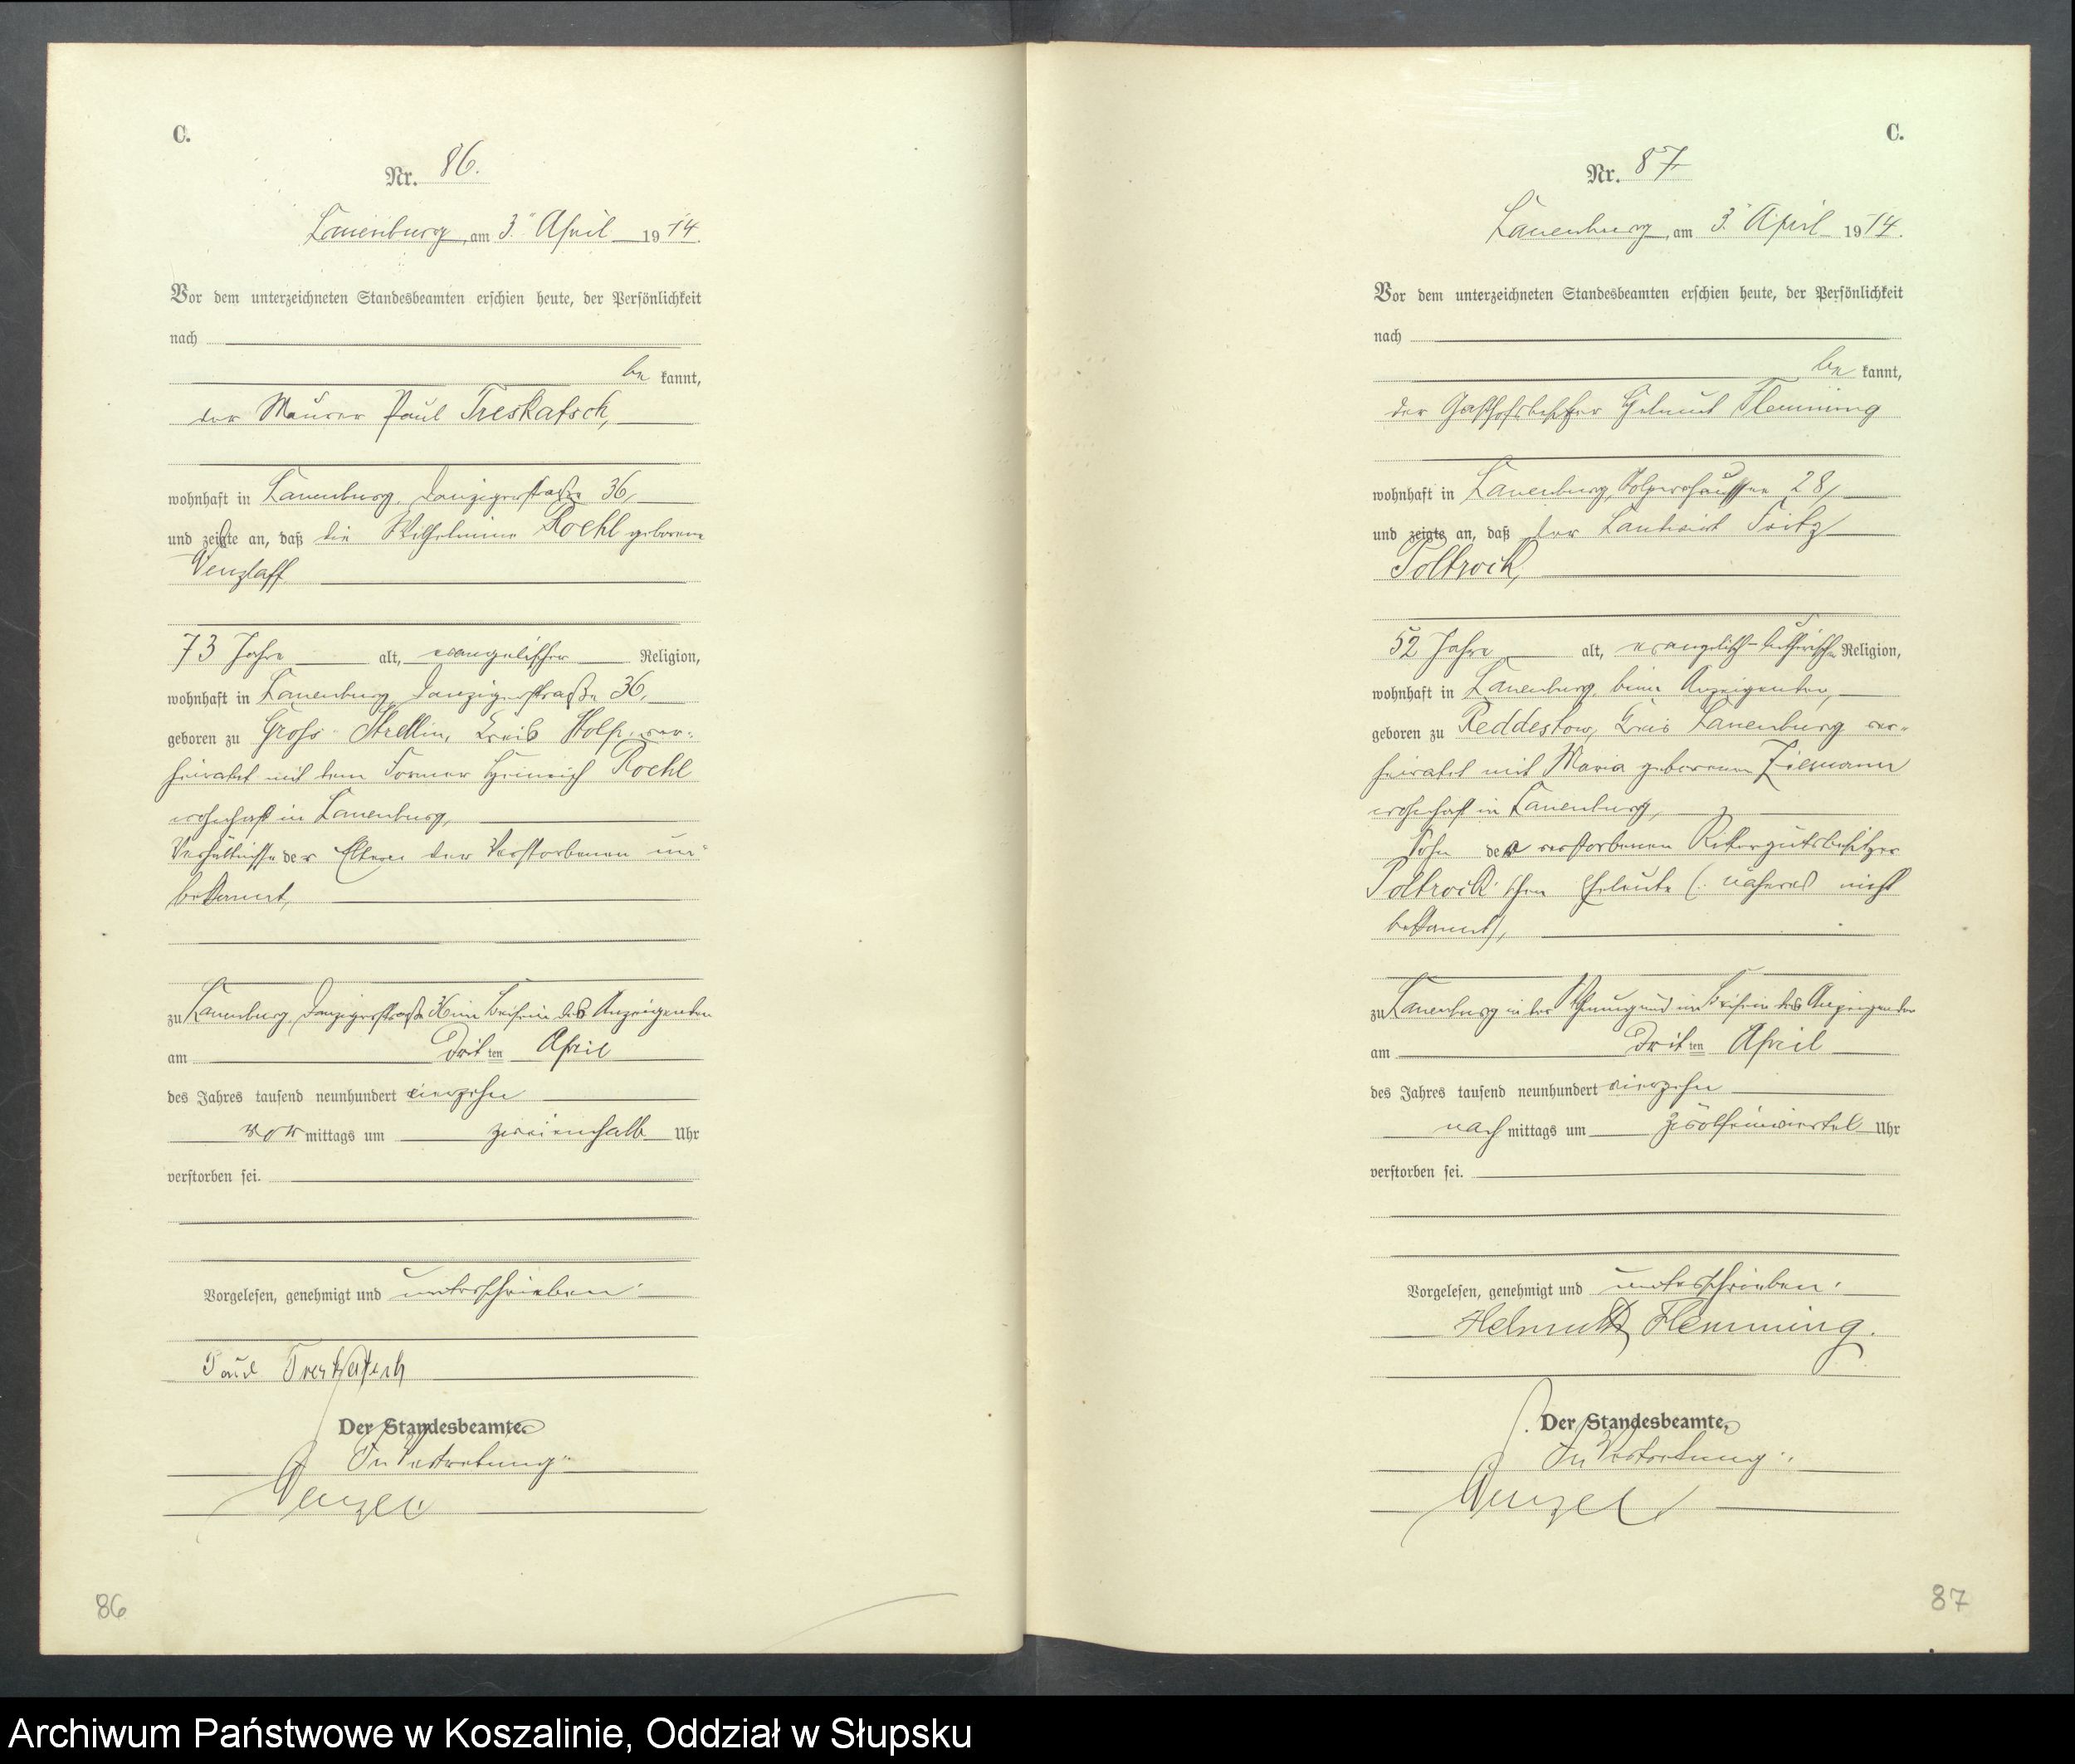 C.
Nr. 86.
Lauenburg, am 3. April 1914.
Vor dem unterzeichneten Standesbeamten erschien heute, der Persönlichkeit
nach
be kannt,
der Maurer Paul Treskatsch,
wohnhaft in Lauenburg, Danzigerstraße 36,
und zeigte an, daß die Wilhelmine Roehl geborene
Venzlaff
73 Jahre alt, evangelischer Religion,
wohnhaft in Lauenburg, Danzigerstraße 36,
geboren zu Gross Strellin, Kreis Stolp, ver-
heiratet mit dem Former Heinrich Roehl
wohnhaft in Lauenburg,
Verhältnisse der Eltern der Verstorbenen un-
bekannt,
zu Lauenburg, Danzigerstraße 36 im Beisein des Anzeigenden
am Dritten April
des Jahres tausend neunhundert vierzehn
vor mittags um zweieinhalb Uhr
verstorben sei.
Vorgelesen, genehmigt und unterschrieben.
Paul Treskatsch
Der Standesbeamte.
In Vertretung:
Wenzel
86
C.
Nr. 87
Lauenburg, am 3. April 1914.
Vor dem unterzeichneten Standesbeamten erschien heute, der Persönlichkeit
nach
be kannt,
der Gasthofsbesitzer Helmut Flemming
wohnhaft in Lauenburg, 28,
und zeigte an, daß der Landwirt Fritz
Poltrock,
52 Jahre alt, evangelisch-lutherischer Religion,
wohnhaft in Lauenburg, beim Anzeigenden,
geboren zu Reddestow, Kreis Lauenburg ver-
heiratet mit Maria geborenen Ziemann
wohnhaft in Lauenburg,
Sohn der verstorbenen Rittergutsbesitzer
Poltrock'schen Eheleute (: näheres nicht
bekannt),
zu Lauenburg in der Wohnung und im Beisein des Anzeigenden
am Dritten April
des Jahres tausend neunhundert vierzehn
nach mittags um zwölfeinviertel Uhr
verstorben sei.
Vorgelesen, genehmigt und unterschrieben.
Helmuth Flemming.
Der Standesbeamte.
In Vertretung:
Wenzel
87
Archiwum Państwowe w Koszalinie, Oddział w Słupsku